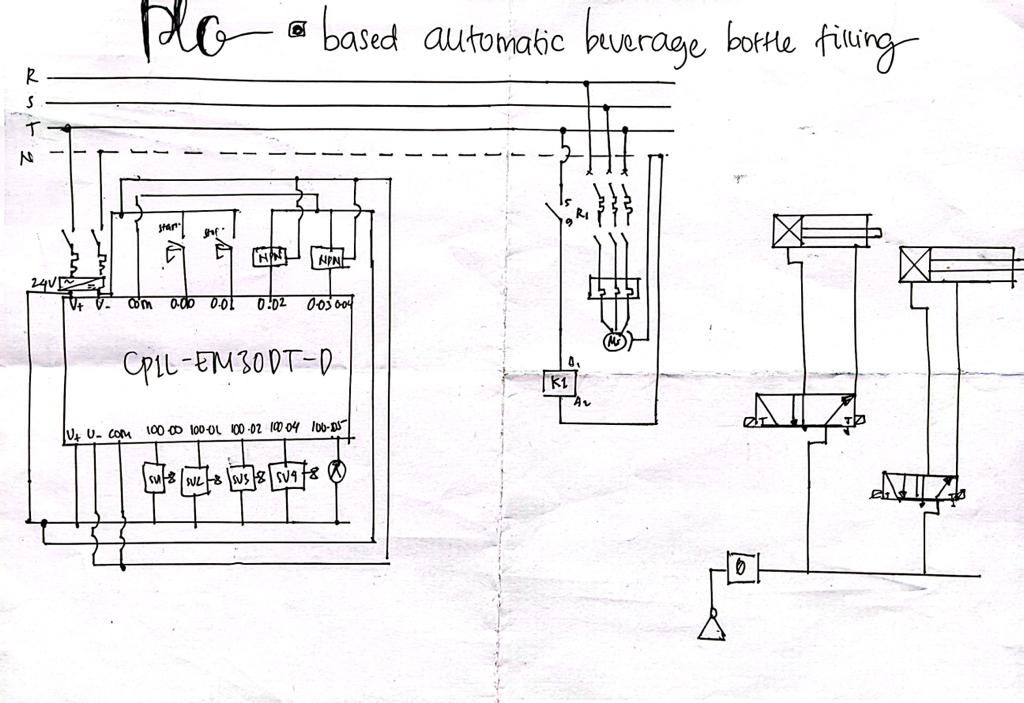 PLC - based automatic beverage bottle filling
R
S
T
N
24V
V+ V- COM 0.00 0.01 0.02 0.03 0.04
start stop
NPN NPN
CP1L-EM30DT-D
V+ V- COM 100.00 100.01 100.02 100.04 100.05
SV1 SV2 SV3 SV4
5
9
K1
A2
T T
T T